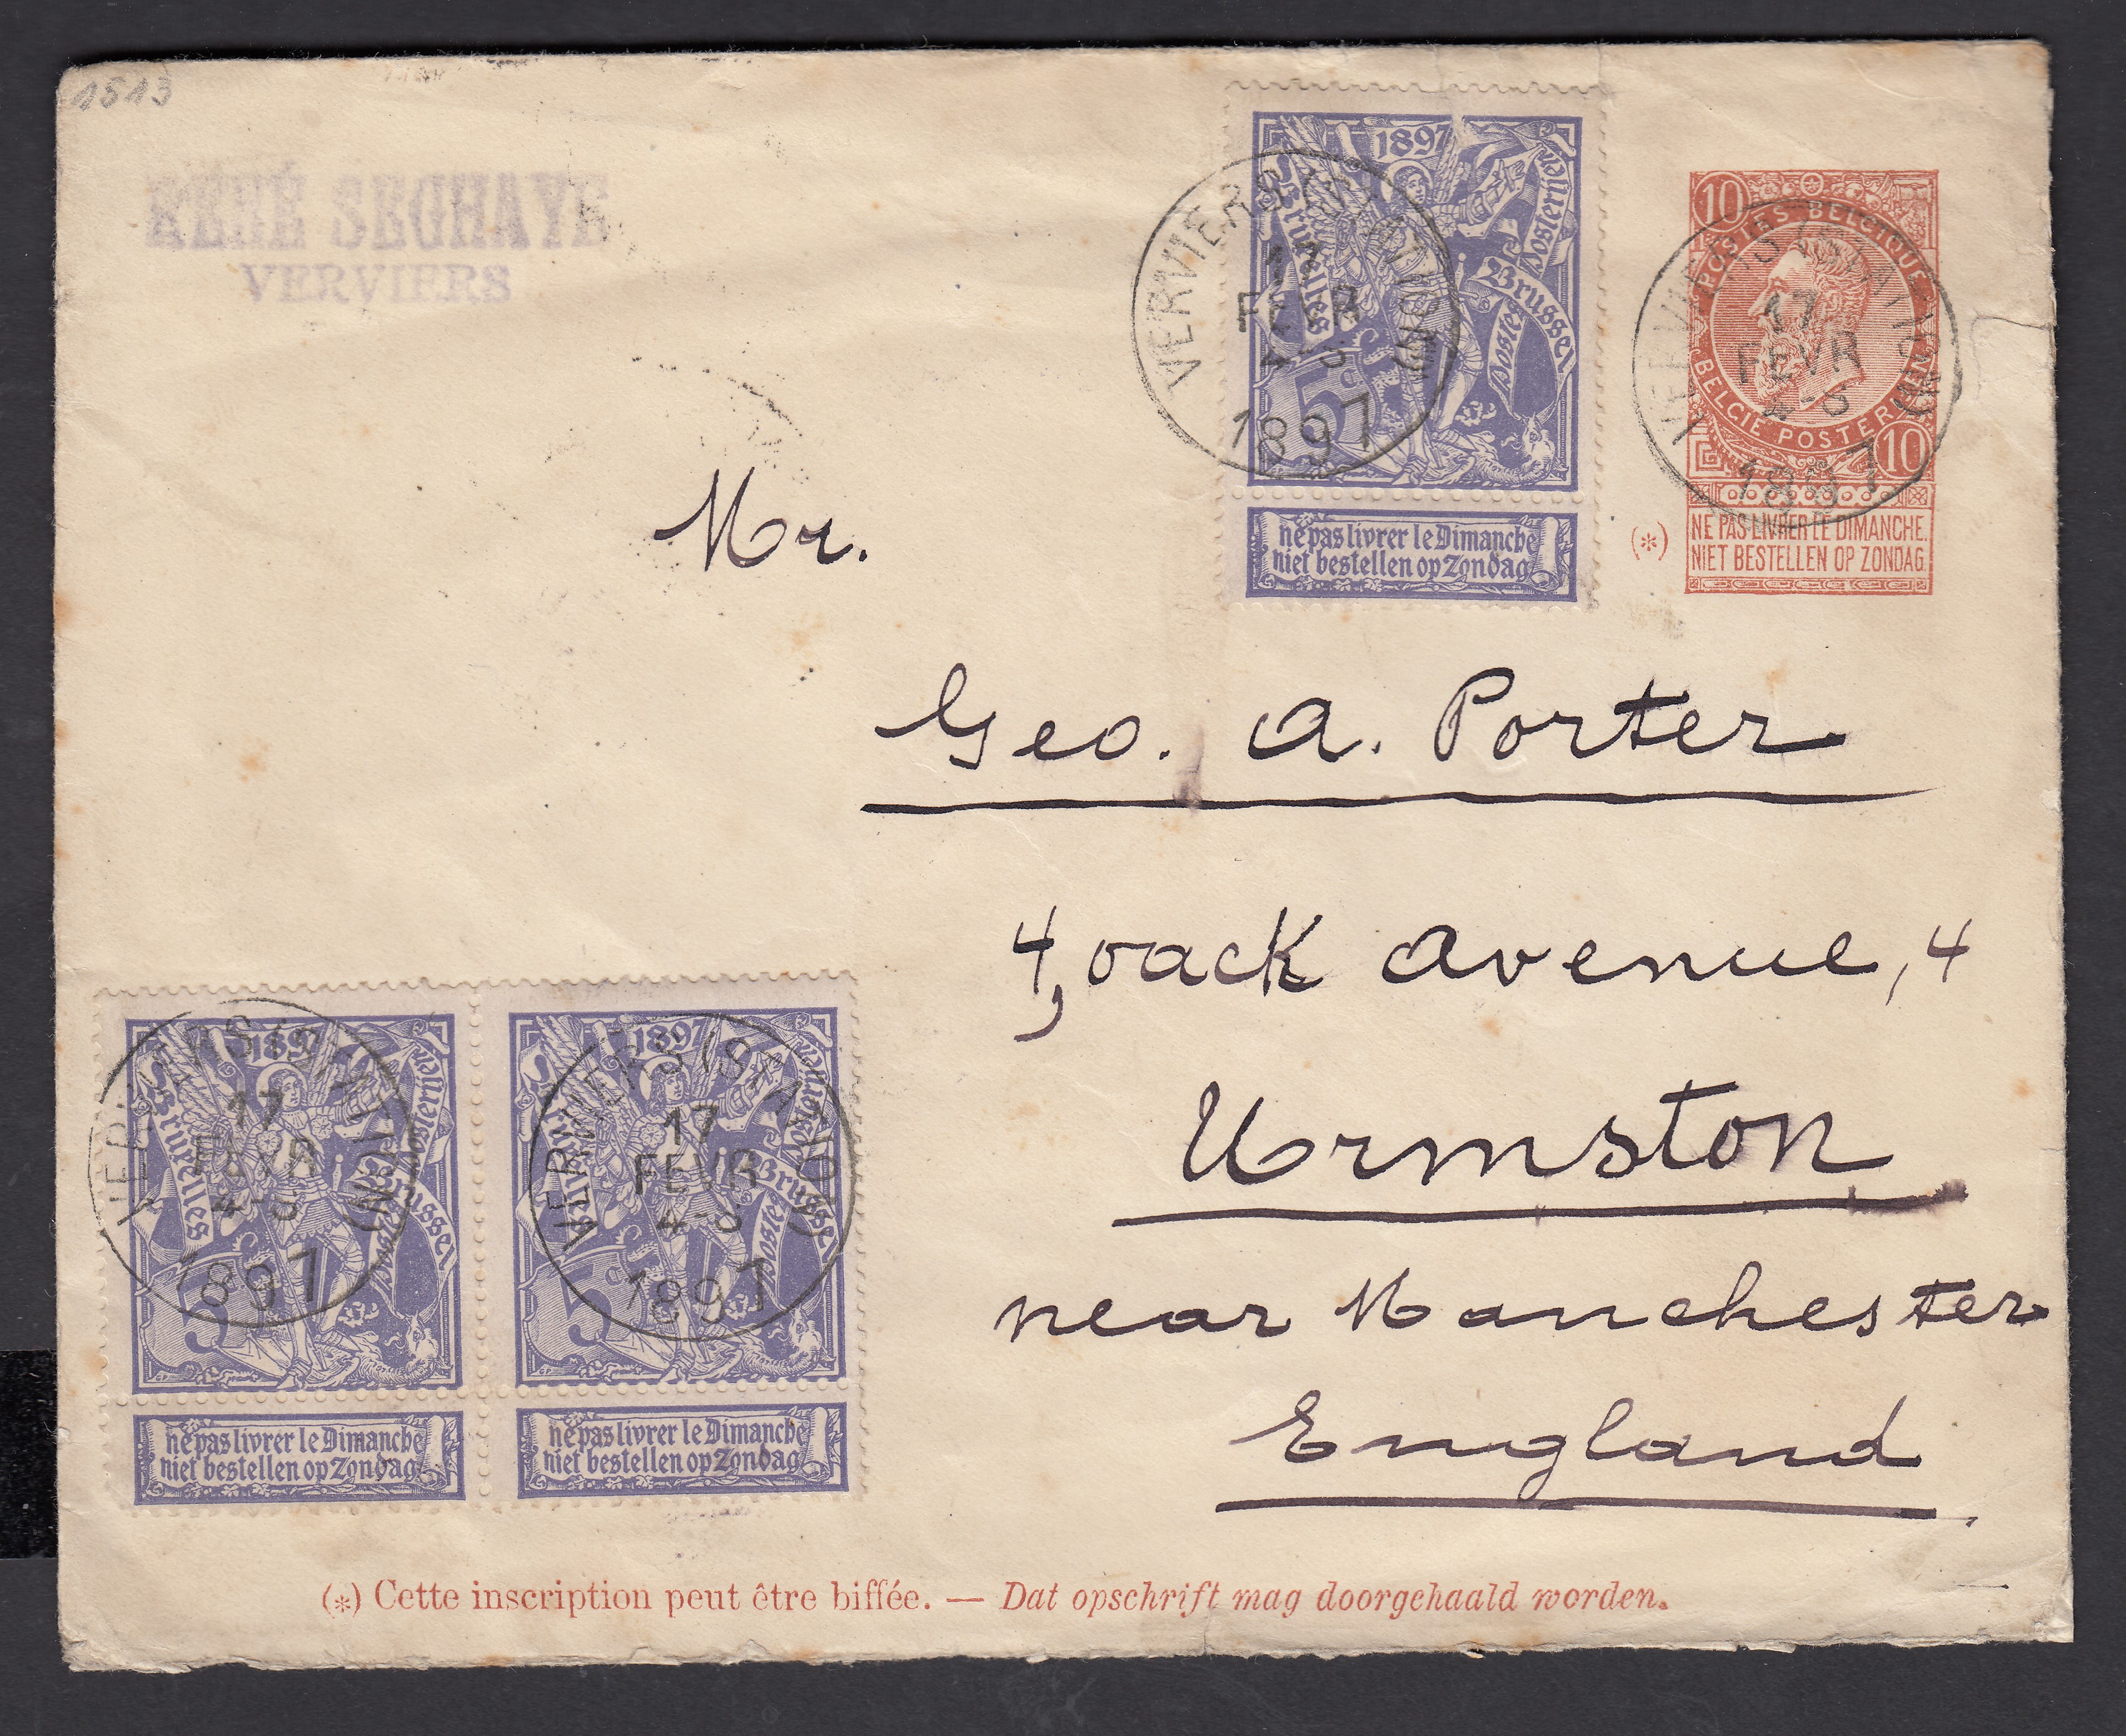 1513
RENÉ SEGHAYE
VERVIERS
1897
Bruxelles
Posternije
Brussel
Postes
5c
ne pas livrer le Dimanche
niet bestellen op Zondag
VERVIERS (STATION)
17
FEVR
4-5
1897
10
POSTES BELGIQUE
BELGIE POSTERIJEN
10
(*)
NE PAS LIVRER LE DIMANCHE.
NIET BESTELLEN OP ZONDAG.
VERVIERS (STATION)
17
FEVR
4-5
1897
Mr.
Geo. A. Porter
4, oack Avenue, 4
Urmston
near Manchester
England
1897
Bruxelles
Brussel
Postes
5c
ne pas livrer le Dimanche
niet bestellen op Zondag
VERVIERS (STATION)
17
FEVR
4-5
1897
1897
Bruxelles
Brussel
Postes
5c
ne pas livrer le Dimanche
niet bestellen op Zondag
VERVIERS (STATION)
17
FEVR
4-5
1897
(*) Cette inscription peut être biffée. — Dat opschrift mag doorgehaald worden.